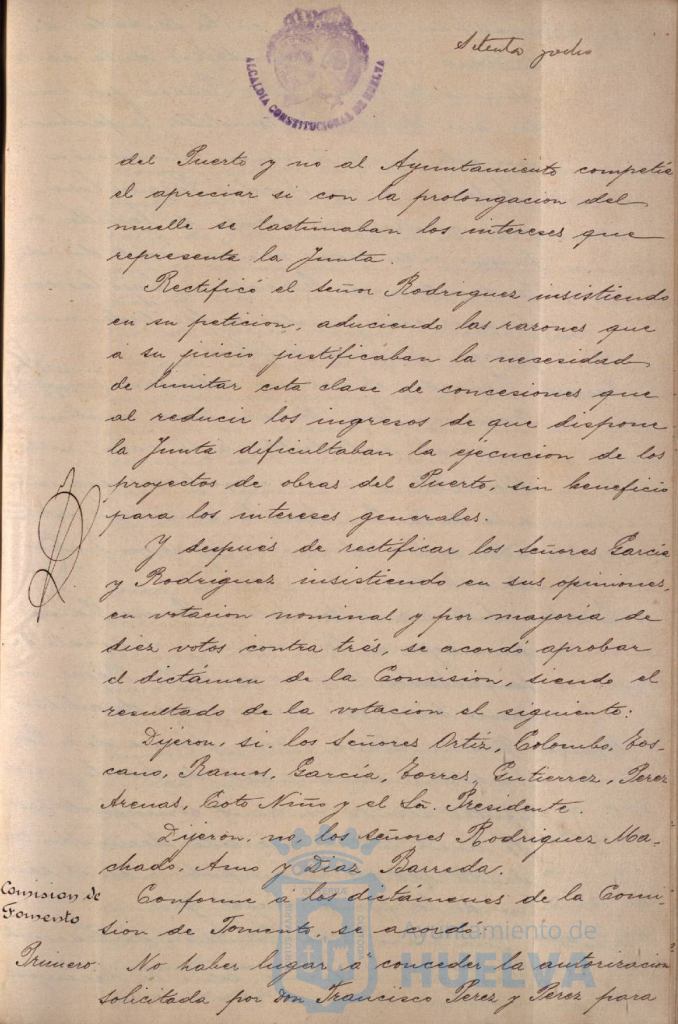 ALCALDIA CONSTITUCIONAL DE HUELVA
Setenta y ocho
del Puerto y no al Ayuntamiento competía
el apreciar si con la prolongacion del
muelle se lastimaban los intereses que
representa la Junta.
Rectificó el Señor Rodriguez insistiendo
en su peticion, aduciendo las razones que
á su juicio justificaban la necesidad
de limitar esta clase de concesiones que
al reducir los ingresos de que dispone
la Junta dificultaban la ejecucion de los
proyectos de obras del Puerto, sin beneficio
para los intereses generales.
Y después de rectificar los Señores García
y Rodriguez insistiendo en sus opiniones,
en votacion nominal y por mayoria de
diez votos contra trés, se acordó aprobar
el dictámen de la Comision, siendo el
resultado de la votacion el siguiente:
Dijeron, si, los Señores Ortiz, Colombo, Tos-
cano, Ramos, García, Torres, Gutierrez, Perez
Arenas, Coto Niño y el Sr. Presidente.
Dijeron, no, los señores Rodriguez Ma-
chado, Amo y Diaz Barreda.
Comision de Fomento
Conforme á los dictámenes de la Comi-
sion de Fomento, se acordó:
Primero
No haber lugar á conceder la autorizacion
solicitada por Don Francisco Perez y Perez para
Ayuntamiento de
HUELVA